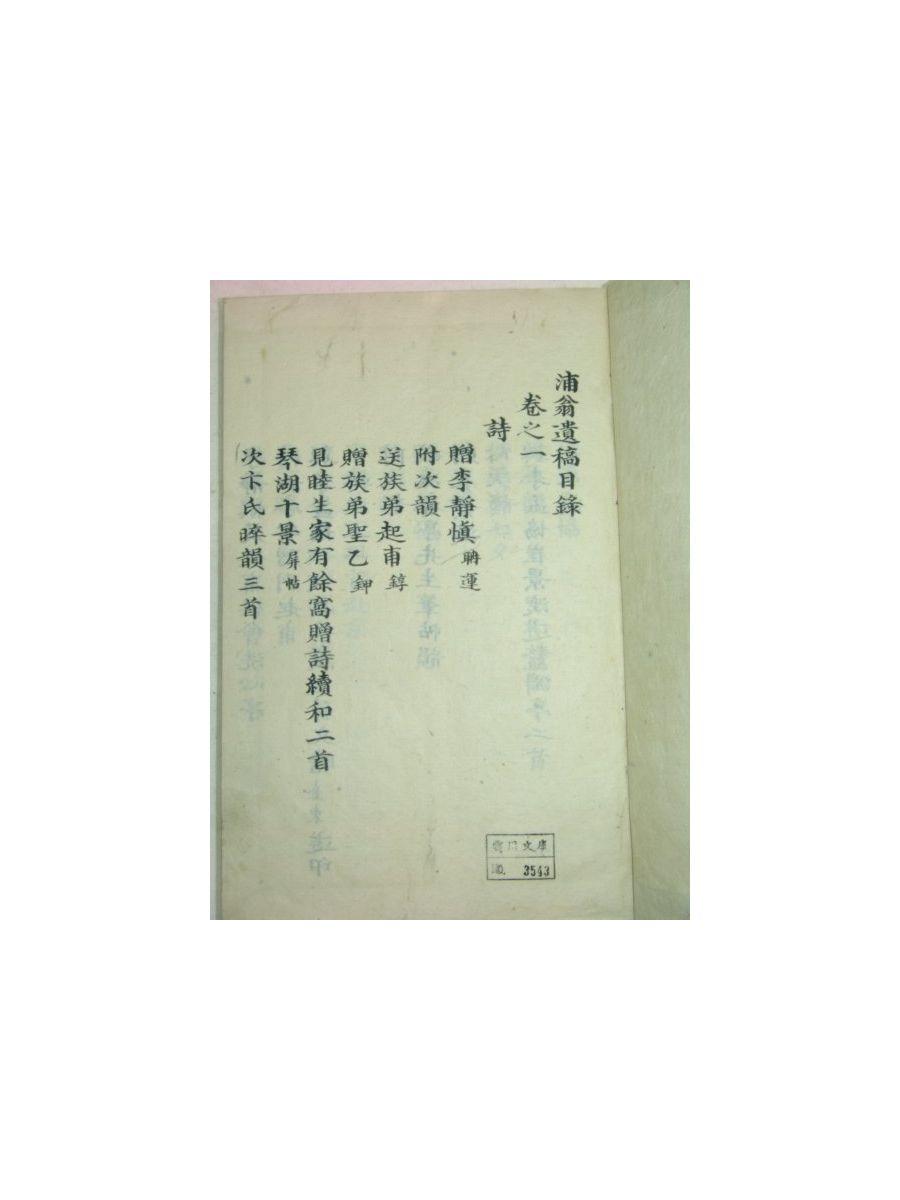 浦翁遺稿目錄
卷之一
詩
贈李靜愼 聃運
附次韻
送族弟起甫 錞
贈族弟聖乙 鉀
見睦生家有餘窩贈詩續和二首
琴湖十景 屏帖
次卞氏晬韻三首
文庫
NO. 3543